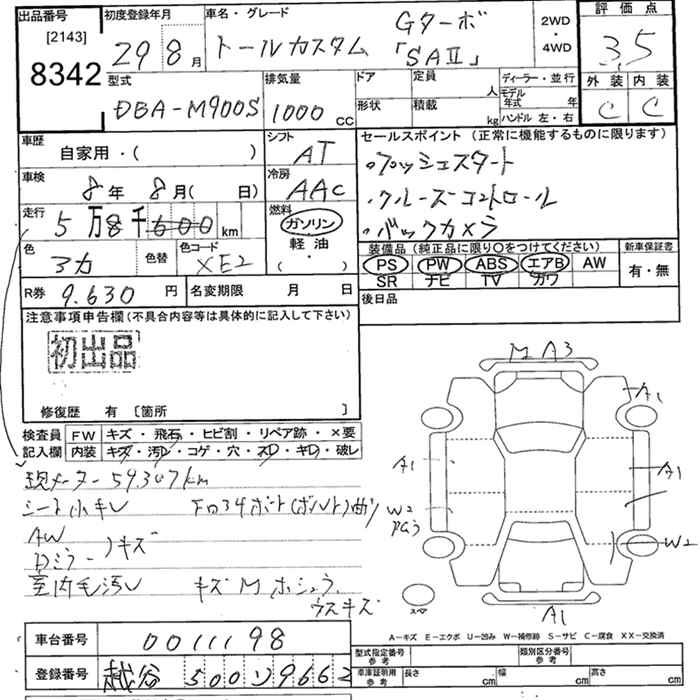 出品番号 [2143] 8342
初度登録年月 29 8月
車名・グレード トールカスタム Gターボ「SAⅡ」
2WD・4WD
評価点 3.5
外装 C 内装 C
型式 DBA-M900S
排気量 1000 CC
ドア 形状
定員 人
積載 kg
ディーラー・並行
モデル年式 年
ハンドル 左・右
車歴 自家用・( )
シフト AT
車検 8年 8月( 日)
冷房 AAC
走行 5万8千600km
燃料 ガソリン 軽油 ( ・ )
色 色替
色コード XE2
R券 9.630円
名変期限 月 日
セールスポイント (正常に機能するものに限ります)
プッシュスタート
クルーズコントロール
バックカメラ
装備品 (純正品に限り○をつけてください)
PS PW ABS エアB AW
SR ナビ TV カワ
新車保証書 有・無
後日品
注意事項申告欄(不具合内容等は具体的に記入して下さい)
初出品
修復歴 有 [箇所 ]
検査員記入欄
FW キズ・飛石・ヒビ割・リペア跡・×要
内装 キズ・汚レ・コゲ・穴・スレ・キレ・破レ
現メーター59307km
シート小キレ
AW
Dミラー )キズ
室内毛汚レ キズM ホシュウ
ウスキズ
M A3
A1
A1
A1
W2
W2
A1
A-キズ E-エクボ U-凹み W-補修跡 S-サビ C-腐食 XX-交換済
車台番号 0011198
登録番号 越谷 500 リ 9662
型式指定番号 参考
類別区分番号 参考
車庫証明用 参考 長さ cm 幅 cm 高さ cm